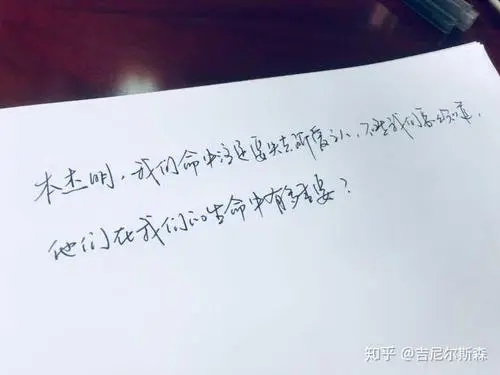 本杰明，我们命中注定要失去所爱之人，不然我们怎么知道，
他们在我们的生命中有多重要？
知乎 @吉尼尔斯森